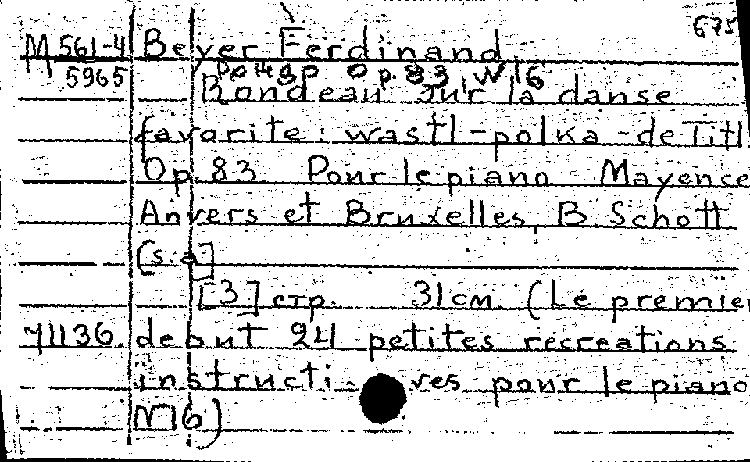 675
M 561-4 Beyer Ferdinand.
5965 Рондо Op.83, N16
Rondeau sur la danse
favorite: wastl-polka-de Titl.
Op. 83 Pour le piano Mayence
Anvers et Bruxelles, B Schott
[s.a]
[3] стр. 31 см. (Le premier
71136. debut 24 petites recreations
instructi ves pour le piano
N16)